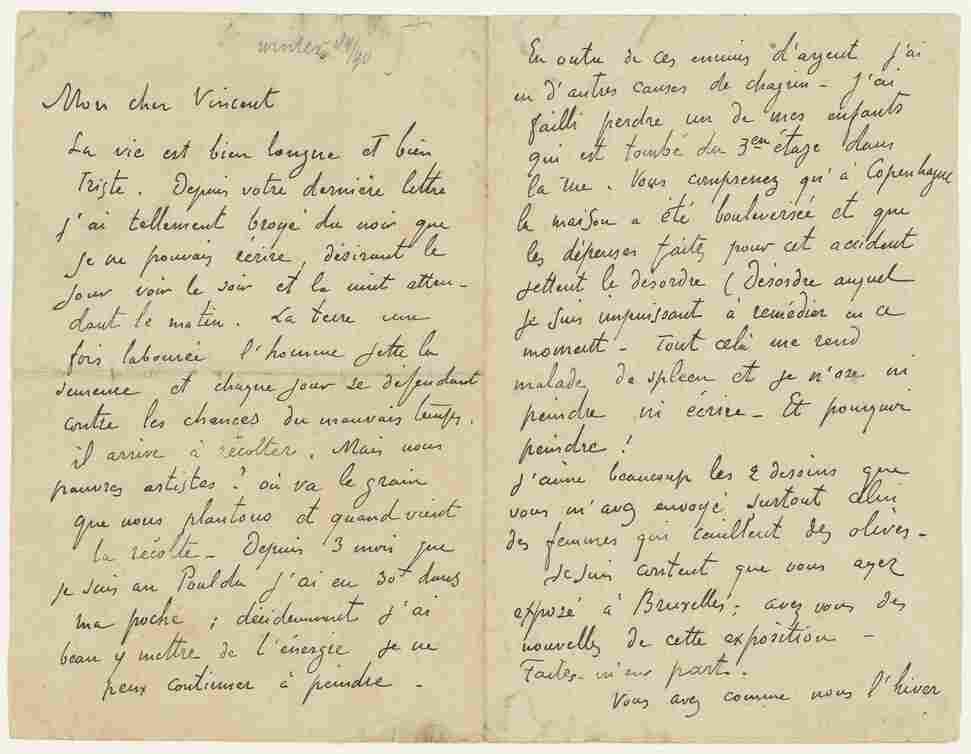 winter 89/90
Mon cher Vincent
La vie est bien longue et bien
Triste. Depuis votre dernière lettre
j'ai tellement broyé du noir que
je ne pouvais écrire, désirant le
jour voir le soir et la nuit atten-
dant le matin. La terre une
fois labourée l'homme jette la
semence et chaque jour se défendant
contre les chances du mauvais temps.
il arrive à récolter. Mais nous
pauvres artistes? où va le grain
que nous plantons et quand vient
la récolte - Depuis 3 mois que
je suis au Pouldu j'ai eu 30f dans
ma poche; décidemment j'ai
beau y mettre de l'énergie je ne
peux continuer à peindre -
En outre de ces ennuis d'argent j'ai
eu d'autres causes de chagrin - J'ai
failli perdre un de mes enfants
qui est tombé du 3em étage dans
la rue. Vous comprenez qu'à Copenhague
la maison a été bouleversée et que
les dépenses faites pour cet accident
jettent le désordre (Désordre auquel
je suis impuissant à remédier en ce
moment - Tout celà me rend
malade de spleen et je n'ose ni
peindre ni écrire - Et pourquoi
peindre!
J'aime beaucoup les 2 dessins que
vous m'avez envoyé surtout celui
des femmes qui cueillent des olives -
Je suis content que vous ayez
exposé à Bruxelles; avez vous des
nouvelles de cette exposition -
Faites-m'en part.
Vous avez comme nous l'hiver